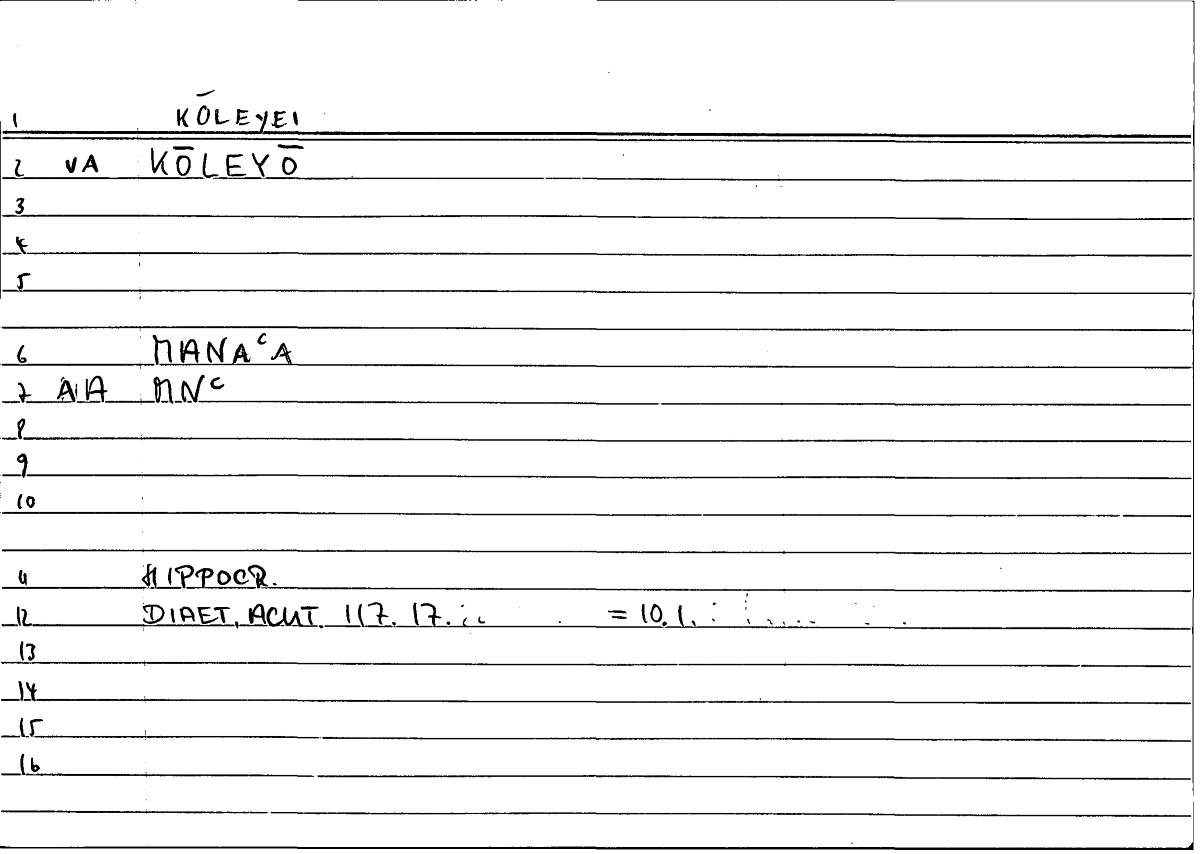 1 KŌLEYEI
2 VA KŌLEYŌ
3
4
5
6 MANAᶜA
7 AIA MNᶜ
8
9
10
11 HIPPOCR.
12 DIAET. ACUT. 117. 17. = 10. 1.
13
14
15
16